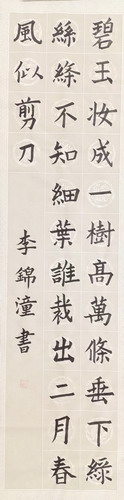 碧玉妆成一樹高萬條垂下綠
絲絛不知細葉誰栽出二月春
風似剪刀
李錦潼書